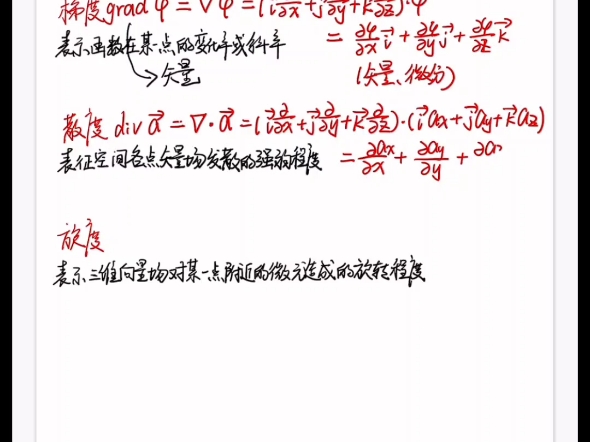 梯度 grad φ = ∇φ = (i⃗ ∂/∂x + j⃗ ∂/∂y + k⃗ ∂/∂z)·φ
表示函数在某点的变化率或斜率 = ∂φ/∂x i⃗ + ∂φ/∂y j⃗ + ∂φ/∂z k⃗
→矢量 (矢量、微分)
散度 div a⃗ = ∇·a⃗ = (i⃗ ∂/∂x + j⃗ ∂/∂y + k⃗ ∂/∂z)·(i⃗ax + j⃗ay + k⃗az)
表征空间各点矢量场发散的强弱程度 = ∂ax/∂x + ∂ay/∂y +
旋度
表示三维向量场对某一点附近的微元造成的旋转程度